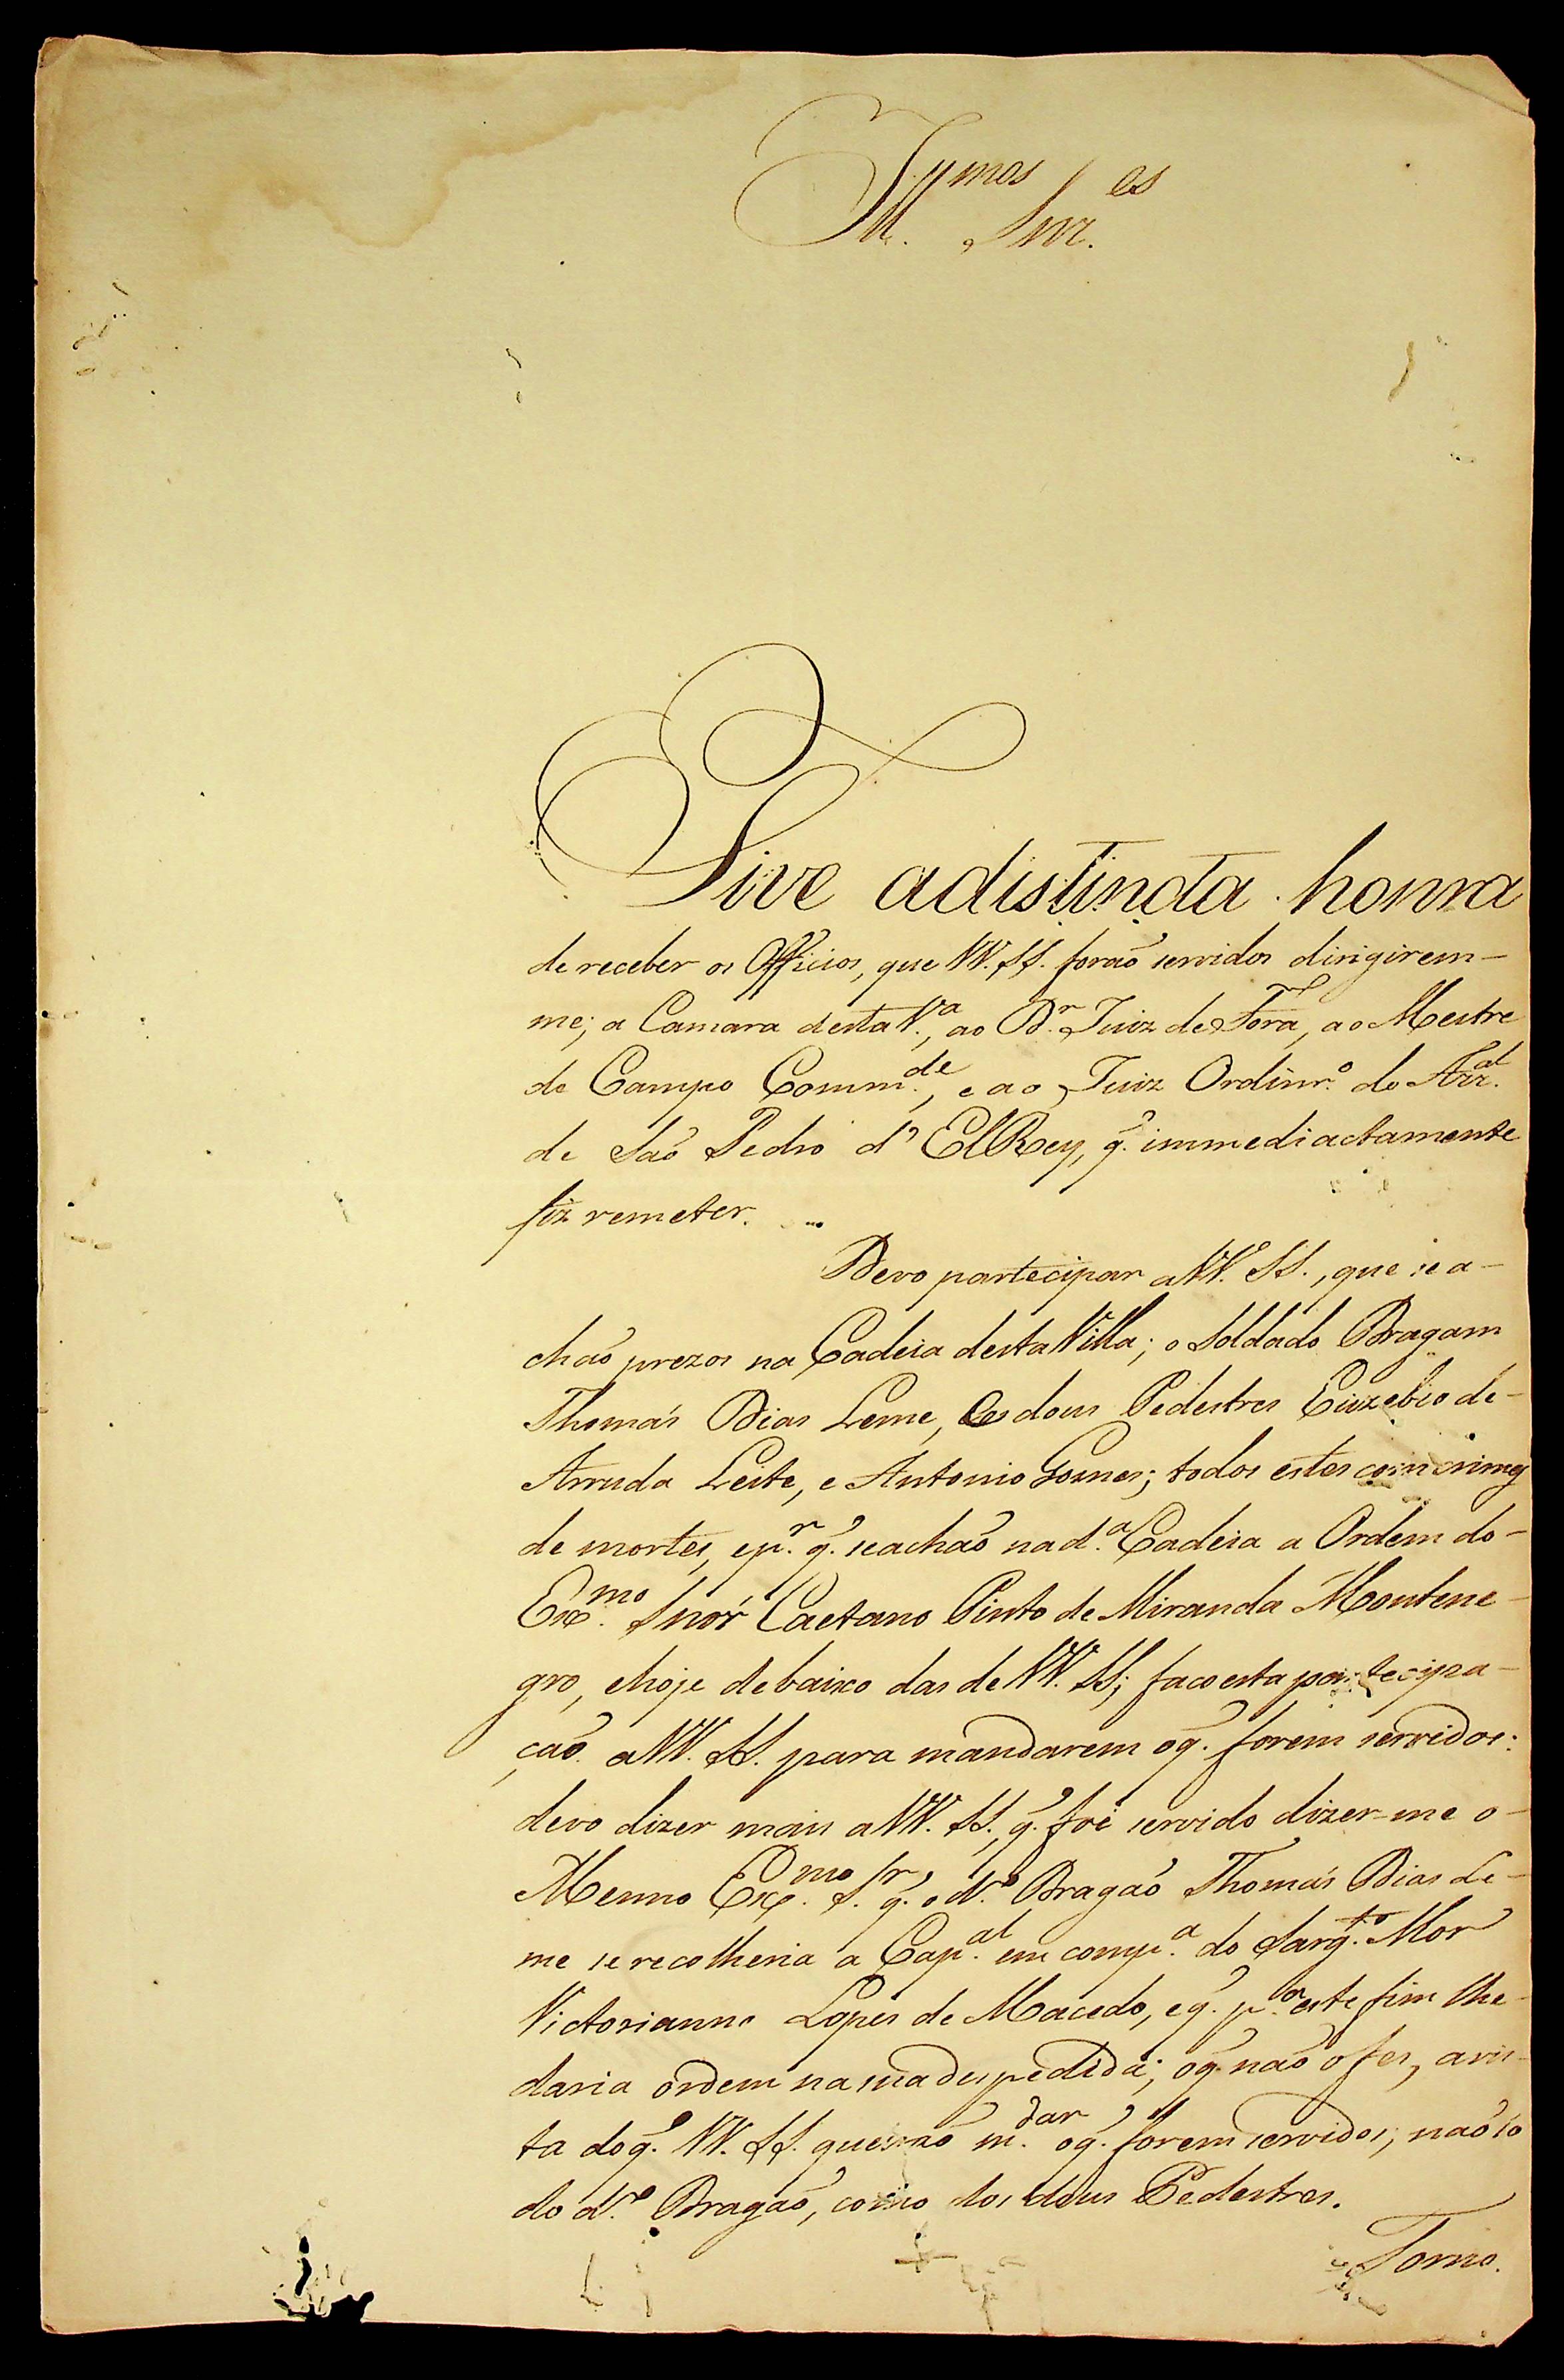 Ill.mos Snr.es
Tive adistincta honra
de receber os Officios, que VV. SS. foraõ servidos dirigirem-
me; a Camara desta V.a, ao D.r Juiz de Fora, ao Mestre
de Campo Comm.de, e ao Juiz Ordinr.o do Arr.al
de Saõ Pedro d' ElRey, q. immediactamente
fiz remeter.
Devo partecipar aVV. SS., que se a-
chaõ prezos na Cadeia desta Villa; o Soldado Dragam
Thomás Dias Leme, e os dous Pedestres Euzebio de-
Arruda Leite, e Antonio Gomes; todos estes com crimes
de mortes, ep.r q. seachaõ na d.a Cadeia a Ordem do-
Ex.mo Snor Caetano Pinto de Miranda Montene-
gro, ehoje debaixo das de VV. SS; faco esta partecipa-
çaõ. aVV. SS. para mandarem oq. forem servidos:
devo dizer mais aVV. SS., q. foi servido dizer-me o-
Mesmo Ex.mo S.r q. o d.o Dragaõ Thomás Dias Le-
me se recolheria a Cap.al em comp.a do Sarg.to Mor
Victorianno Lopes de Macedo, eq. p.a este fim lhe-
daria ordem na sua despedida; oq. naõ o fes, avis-
ta doq. VV. SS. queiraõ m.dar oq. forem servidos, naõ só
do d.o Dragaõ, como dos dous Pedestres.
Torno.